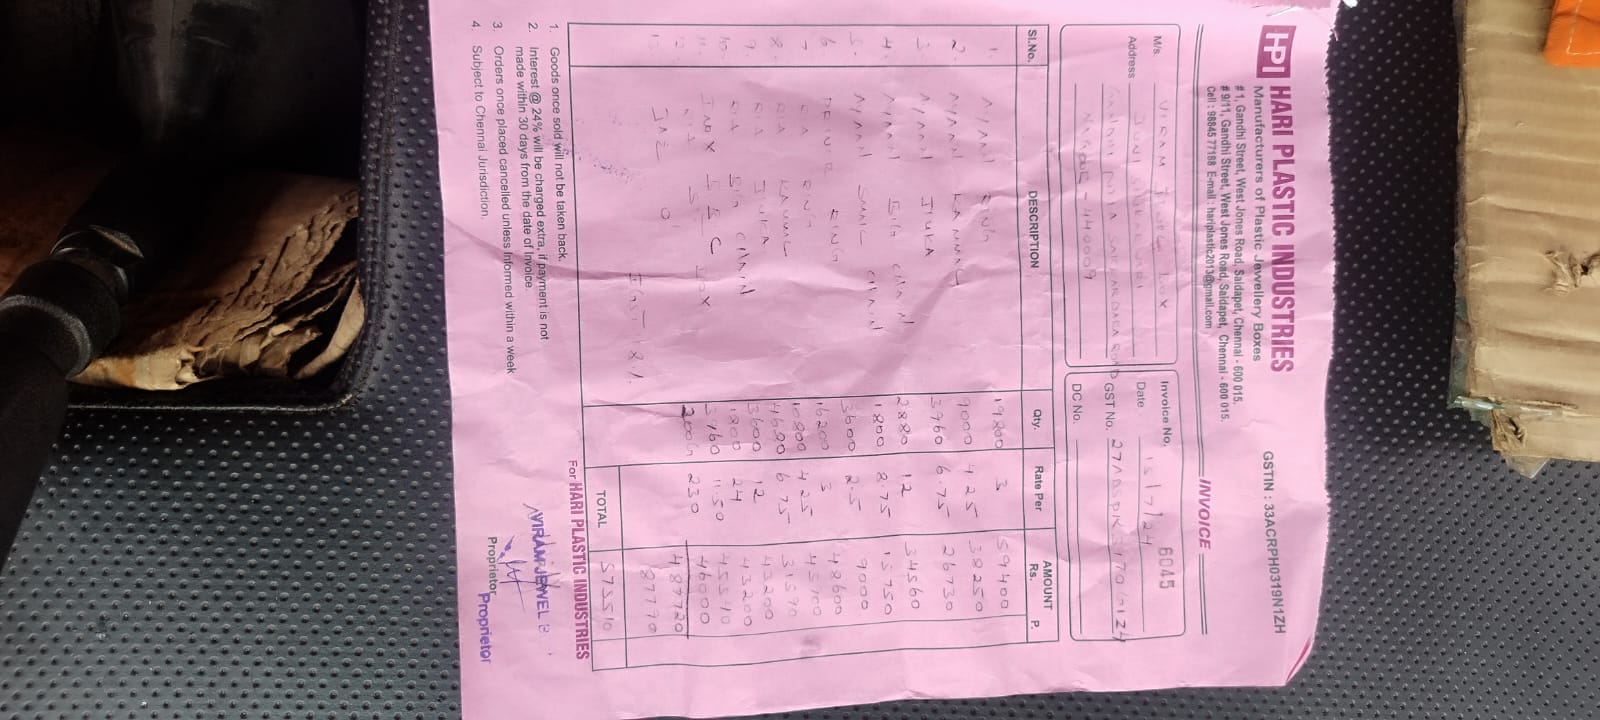 HPI HARI PLASTIC INDUSTRIES
GSTIN : 33ACRPH0319N1ZH
Manufacturers of Plastic Jewellery Boxes
# 1, Gandhi Street, West Jones Road, Saidapet, Chennai - 600 015.
# 9/11, Gandhi Street, West Jones Road, Saidapet, Chennai - 600 015.
Cell : 98845 77188 E-mail : hariplastic2013@gmail.com
INVOICE
M/s. VIRAM JEWEL BOX
Invoice No. 6045
Address JUNI SHUKARWARI
Date 15/7/24
SAKKARDARA ROAD
GST No.
NAGPUR - 440009
DC No.
Sl.No. DESCRIPTION Qty. Rate Per AMOUNT Rs. P.
1 AYAAN RING 19800 3 59400
2 AYAAN KAMMAL 9000 4.25 38250
3 AYAAN JIUKA 3960 6.75 26730
4 AYAAN BIG CHAIN 2880 12 34560
5 AYAAN SMALL CHAIN 1800 8.75 15750
6 RING 3600 2.5 9000
7 RIA RING 16200 3 48600
8 RIA KAMMAL 10800 4.25
9 RIA JIUKA 4680 6.75 31590
10 RIA BIG CHAIN 3600 12 43200
11 BOX 1800 24 43200
12 3960 11.50 45540
13 200 230 46000
487720
IGST 18%
87790
TOTAL 575510
1. Goods once sold will not be taken back.
2. Interest @ 24% will be charged extra, if payment is not
made within 30 days from the date of Invoice.
3. Orders once placed cancelled unless Informed within a week
4. Subject to Chennai Jurisdiction.
For HARI PLASTIC INDUSTRIES
VIRAM JEWEL B
Proprietor
Proprietor